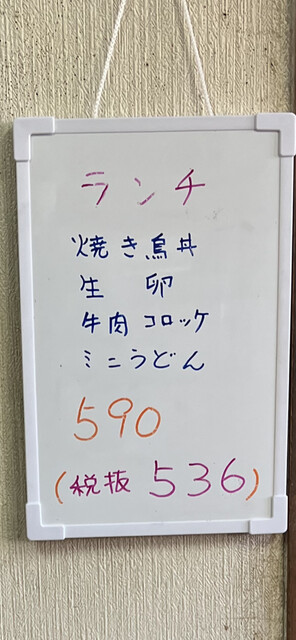 ランチ
焼き鳥丼
生 卵
牛肉コロッケ
ミニうどん
590
(税抜 536)